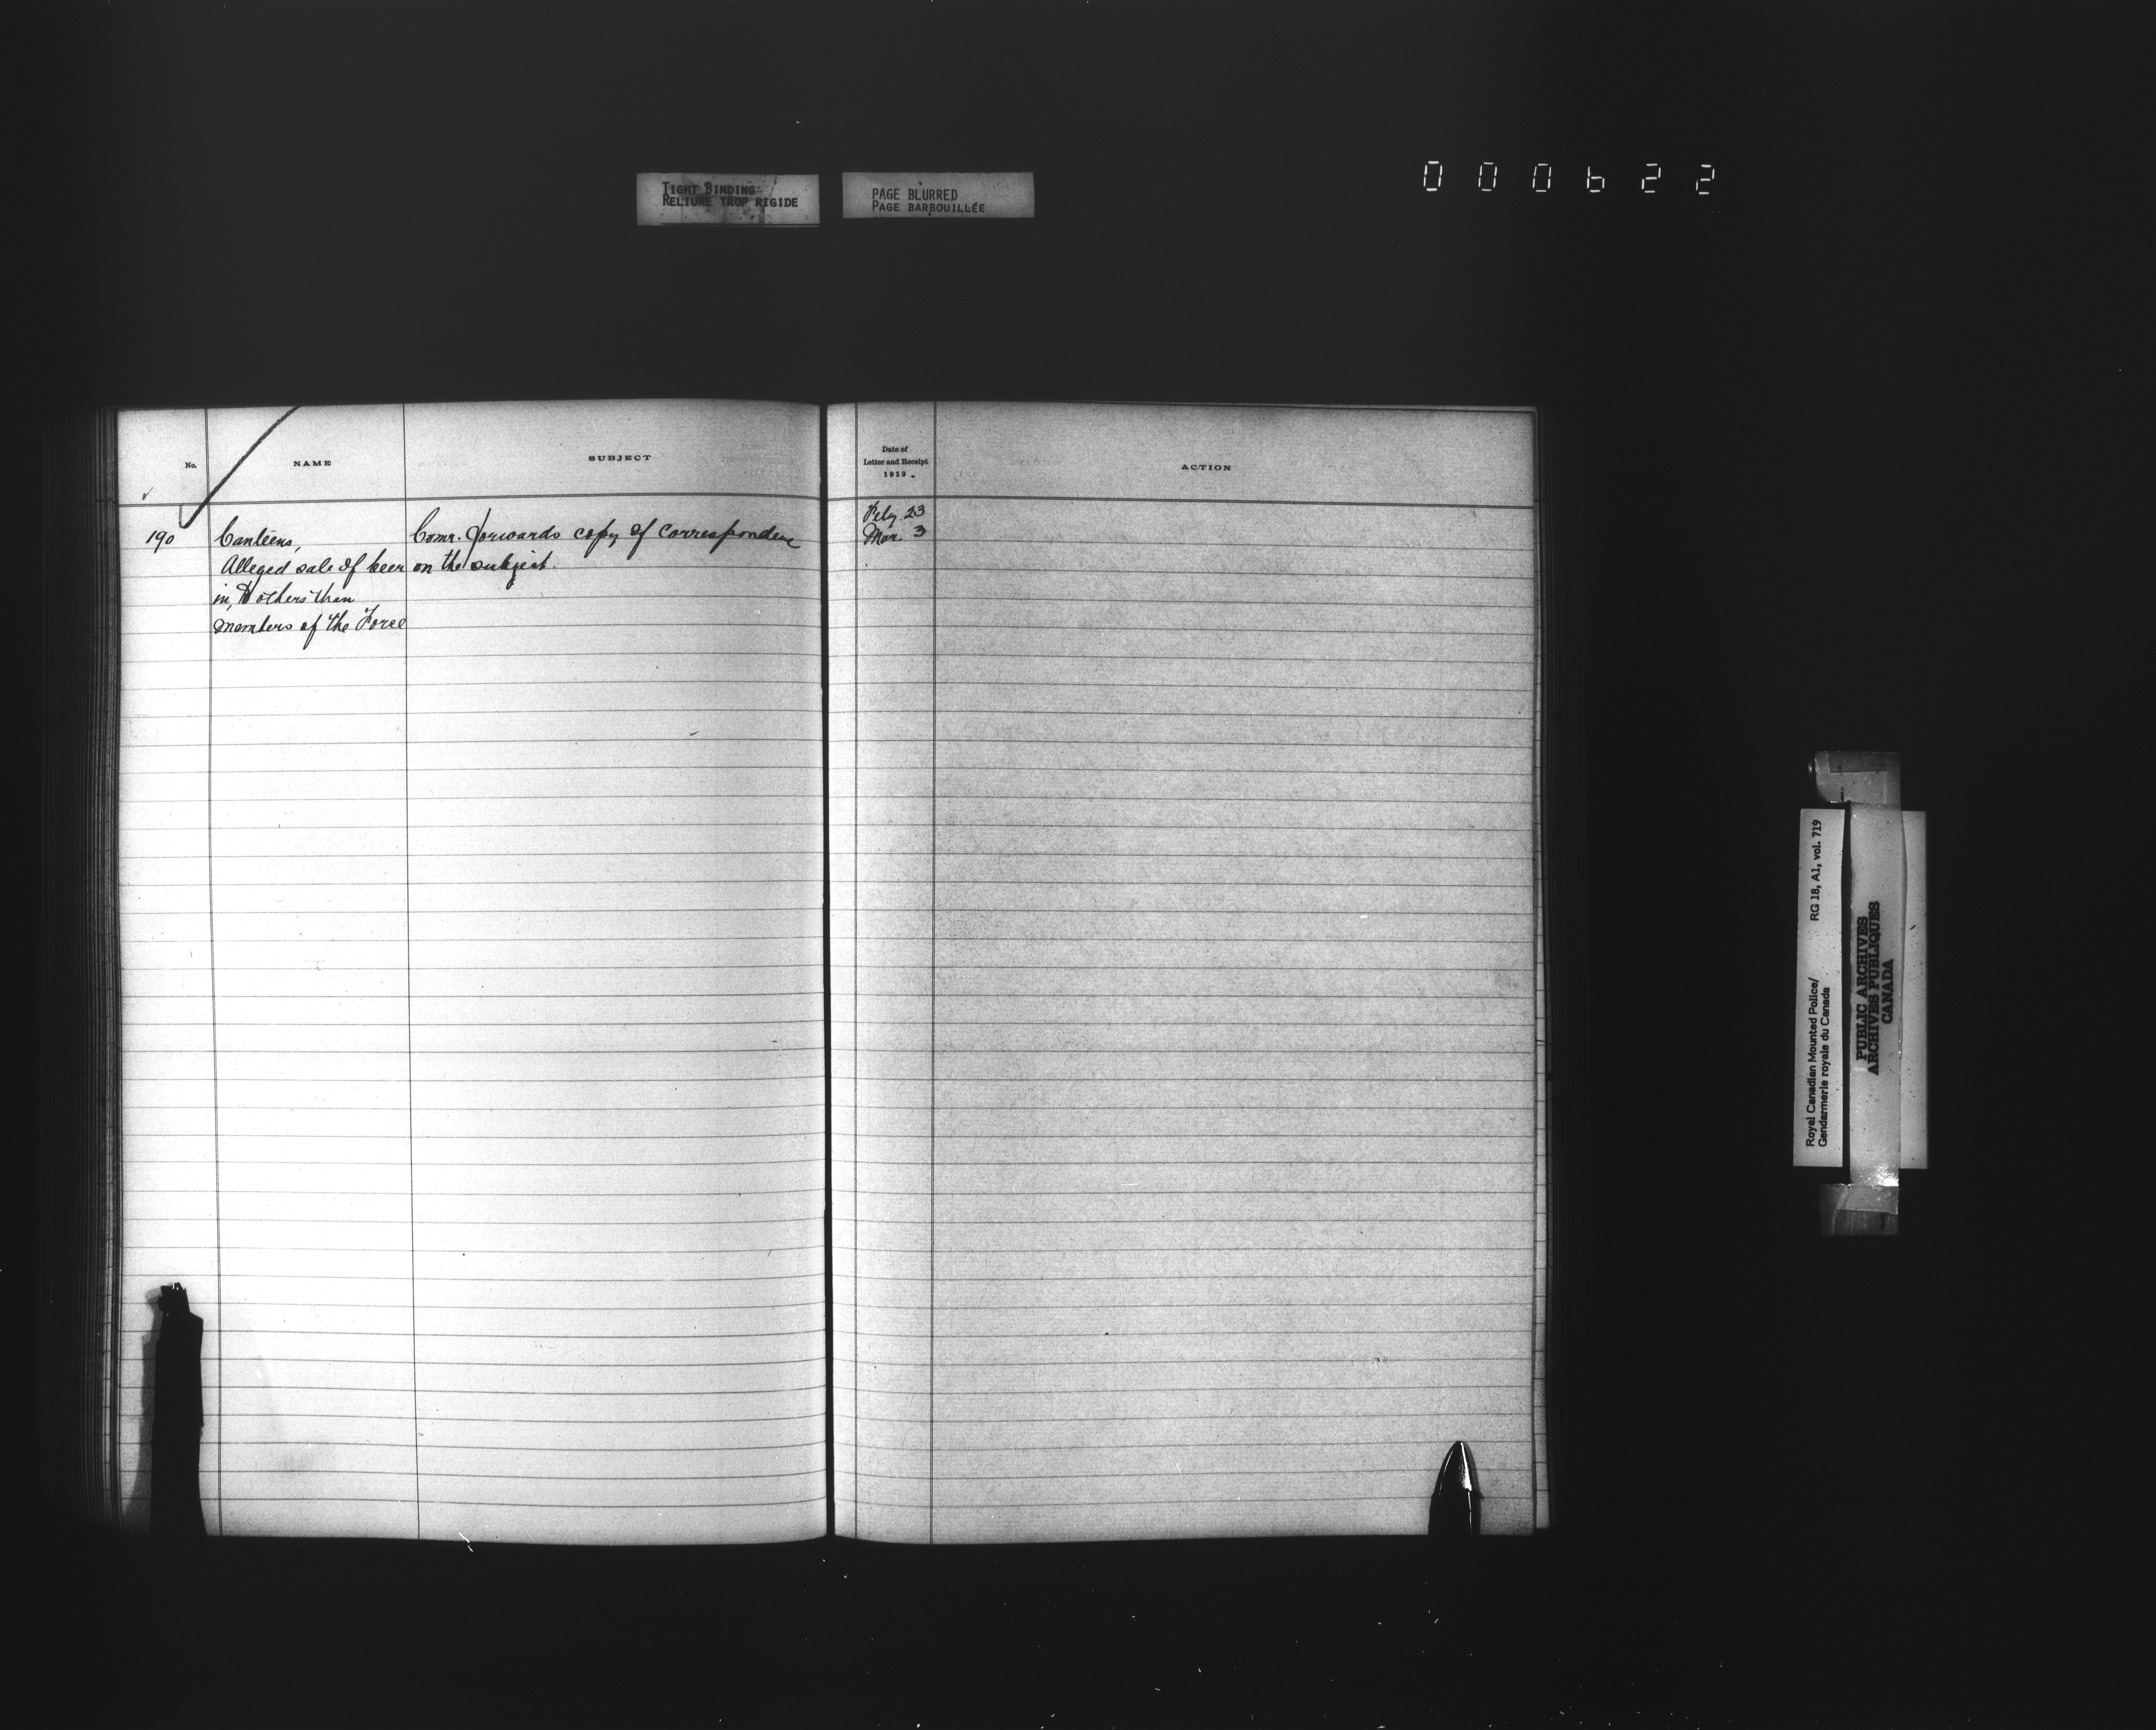 TIGHT BINDING
RELIURE TROP RIGIDE
PAGE BLURRED
PAGE BARBOUILLÉE
000622
No.
NAME
SUBJECT
Date of
Letter and Receipt
1913
ACTION
190
Canteens,
Alleged sale of beer
in, to others than
members of the Force
Comr. forwards copy of correspondence
on the subject.
Feby. 23
Mar. 3
Royal Canadian Mounted Police/
Gendarmerie royale du Canada
RG 18, A1, vol. 719
PUBLIC ARCHIVES
ARCHIVES PUBLIQUES
CANADA